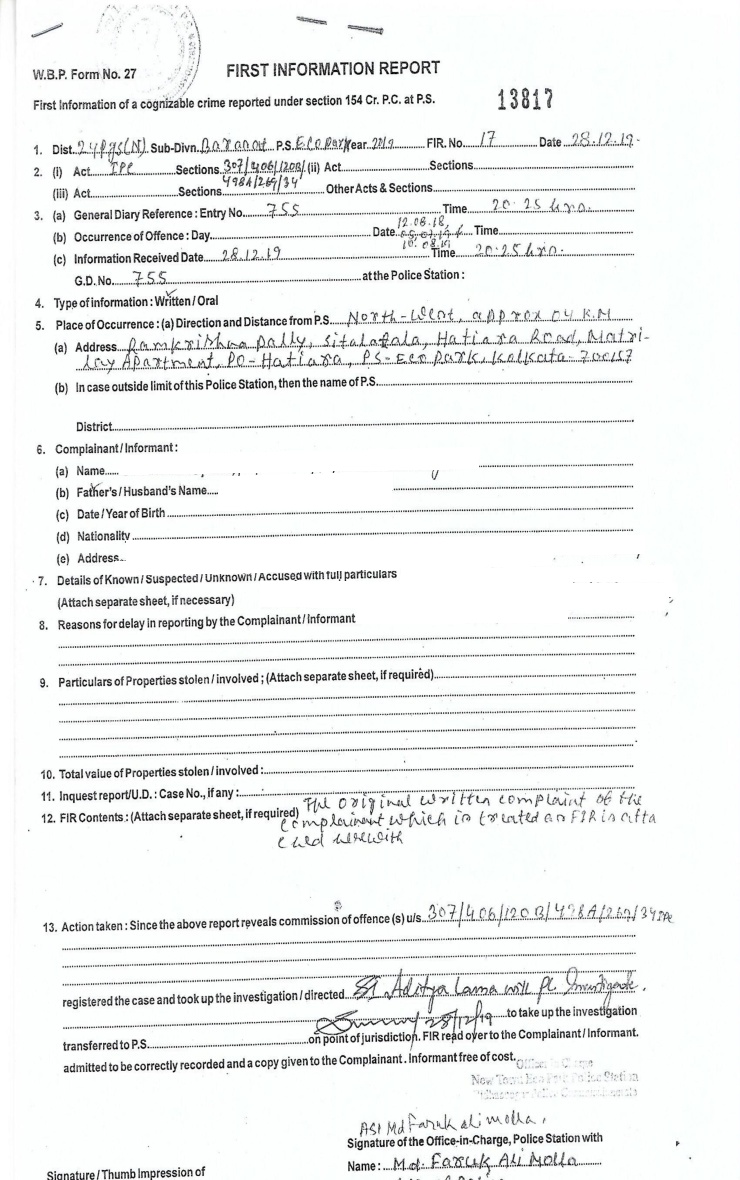 W.B.P. Form No. 27 FIRST INFORMATION REPORT
First Information of a cognizable crime reported under section 154 Cr. P.C. at P.S. 13817
1. Dist. 24 Pgs(N) Sub-Divn. Barasat P.S. Eco Park Year 2019 FIR. No. 17 Date 28.12.19.
2. (i) Act IPC Sections 307/406/120B/ (ii) Act Sections
498A/269/34
(iii) Act Sections Other Acts & Sections
3. (a) General Diary Reference : Entry No. 755 Time 20.25 hrs.
12.08.18,
(b) Occurrence of Offence : Day Date Time
10.08.19
(c) Information Received Date 28.12.19 Time 20.25 hrs.
G.D. No. 755 at the Police Station :
4. Type of information : Written / Oral
5. Place of Occurrence : (a) Direction and Distance from P.S. North-West, approx 04 K.M
(a) Address Ramkrishna Pally, Sitalatala, Hatiara Road, Matri-
loy Apartment, PO-Hatiara, PS-Eco Park, Kolkata-700157
(b) In case outside limit of this Police Station, then the name of P.S.
District
6. Complainant / Informant :
(a) Name
(b) Father's / Husband's Name
(c) Date / Year of Birth
(d) Nationality
(e) Address
7. Details of Known / Suspected / Unknown / Accused with full particulars
(Attach separate sheet, if necessary)
8. Reasons for delay in reporting by the Complainant / Informant
9. Particulars of Properties stolen / involved ; (Attach separate sheet, if required)
10. Total value of Properties stolen / involved :
11. Inquest report/U.D. : Case No., if any :
12. FIR Contents : (Attach separate sheet, if required) The original written complaint of the
complainant which is treated as FIR is atta
ched herewith
13. Action taken : Since the above report reveals commission of offence (s) u/s. 307/406/120B/498A/269/34 IPC
registered the case and took up the investigation / directed SI Aditya Lama will pl Investigate.
28/12/19 to take up the investigation
transferred to P.S. on point of jurisdiction. FIR read over to the Complainant / Informant.
admitted to be correctly recorded and a copy given to the Complainant. Informant free of cost.
Officer in Charge
New Town Eco Park Police Station
ASI Md Faruk ali molla.
Signature of the Office-in-Charge, Police Station with
Name : Md. Faruk Ali Molla
Signature / Thumb Impression of